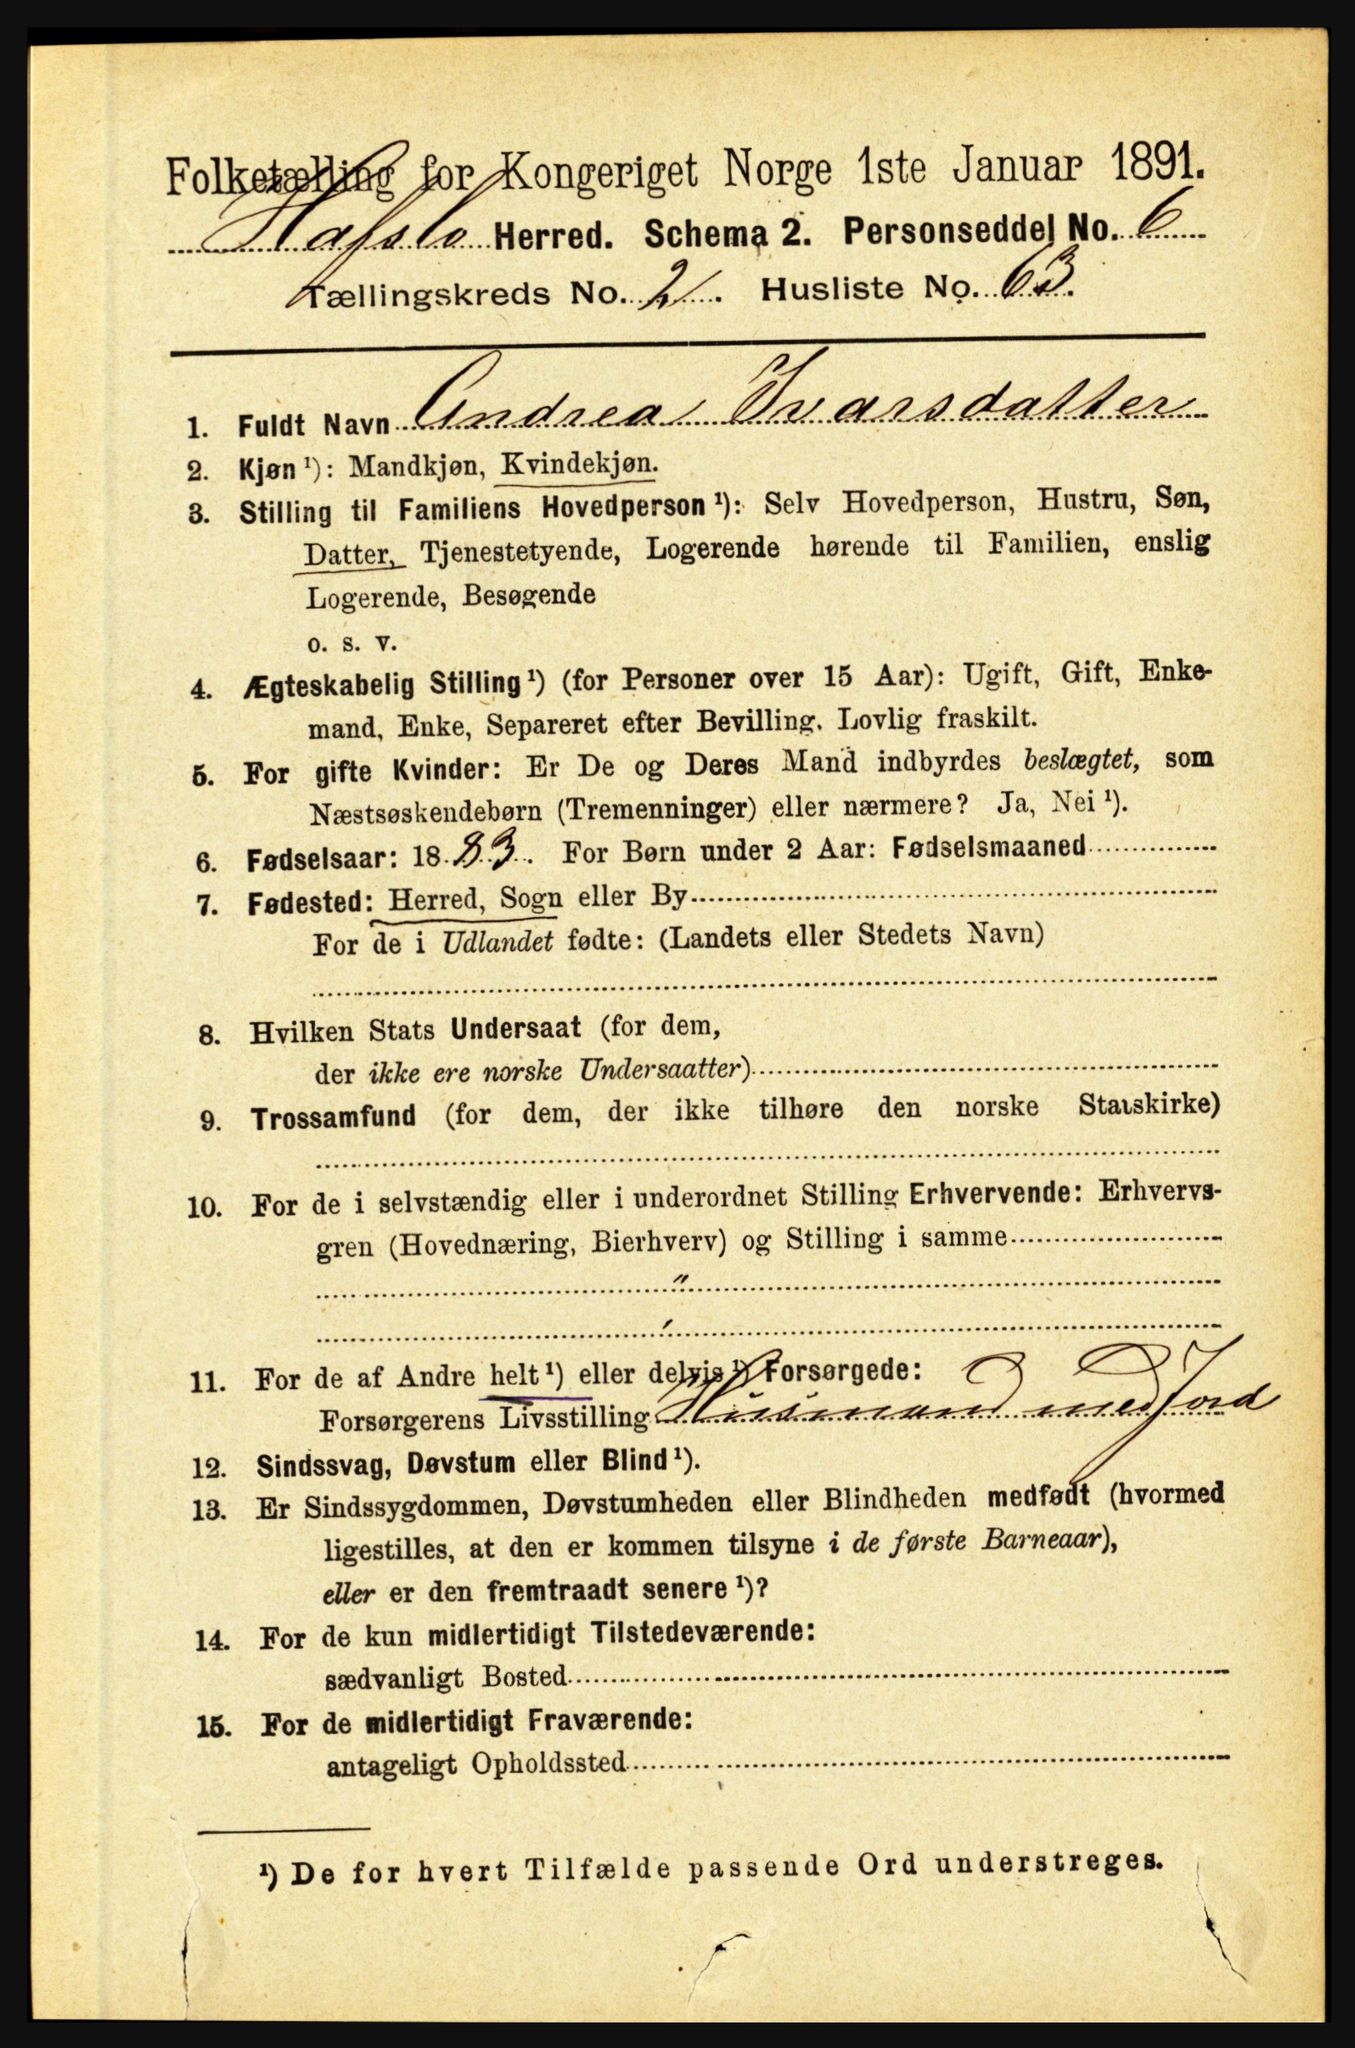 Folketælling for Kongeriget Norge 1ste Januar 1891.
Hafslo Herred. Schema 2. Personseddel No. 6
Tællingskreds No. 2. Husliste No. 63.
1. Fuldt Navn Andrea Ivarsdatter
2. Kjøn ¹): Mandkjøn, Kvindekjøn.
3. Stilling til Familiens Hovedperson ¹): Selv Hovedperson, Hustru, Søn,
Datter, Tjenestetyende, Logerende hørende til Familien, enslig
Logerende, Besøgende
o. s. v.
4. Ægteskabelig Stilling ¹) (for Personer over 15 Aar): Ugift, Gift, Enke-
mand, Enke, Separeret efter Bevilling. Lovlig fraskilt.
5. For gifte Kvinder: Er De og Deres Mand indbyrdes beslægtet, som
Næstsøskendebørn (Tremenninger) eller nærmere? Ja, Nei ¹).
6. Fødselsaar: 1883. For Børn under 2 Aar: Fødselsmaaned
7. Fødested: Herred, Sogn eller By
For de i Udlandet fødte: (Landets eller Stedets Navn)
8. Hvilken Stats Undersaat (for dem,
der ikke ere norske Undersaatter)
9. Trossamfund (for dem, der ikke tilhøre den norske Statskirke)
10. For de i selvstændig eller i underordnet Stilling Erhvervende: Erhvervs-
gren (Hovednæring, Bierhverv) og Stilling i samme
"
11. For de af Andre helt ¹) eller delvis ¹) Forsørgede:
Forsørgerens Livsstilling Husmand med Jord
12. Sindssvag, Døvstum eller Blind ¹).
13. Er Sindssygdommen, Døvstumheden eller Blindheden medfødt (hvormed
ligestilles, at den er kommen tilsyne i de første Barneaar),
eller er den fremtraadt senere ¹)?
14. For de kun midlertidigt Tilstedeværende:
sædvanligt Bosted
15. For de midlertidigt Fraværende:
antageligt Opholdssted
¹) De for hvert Tilfælde passende Ord understreges.